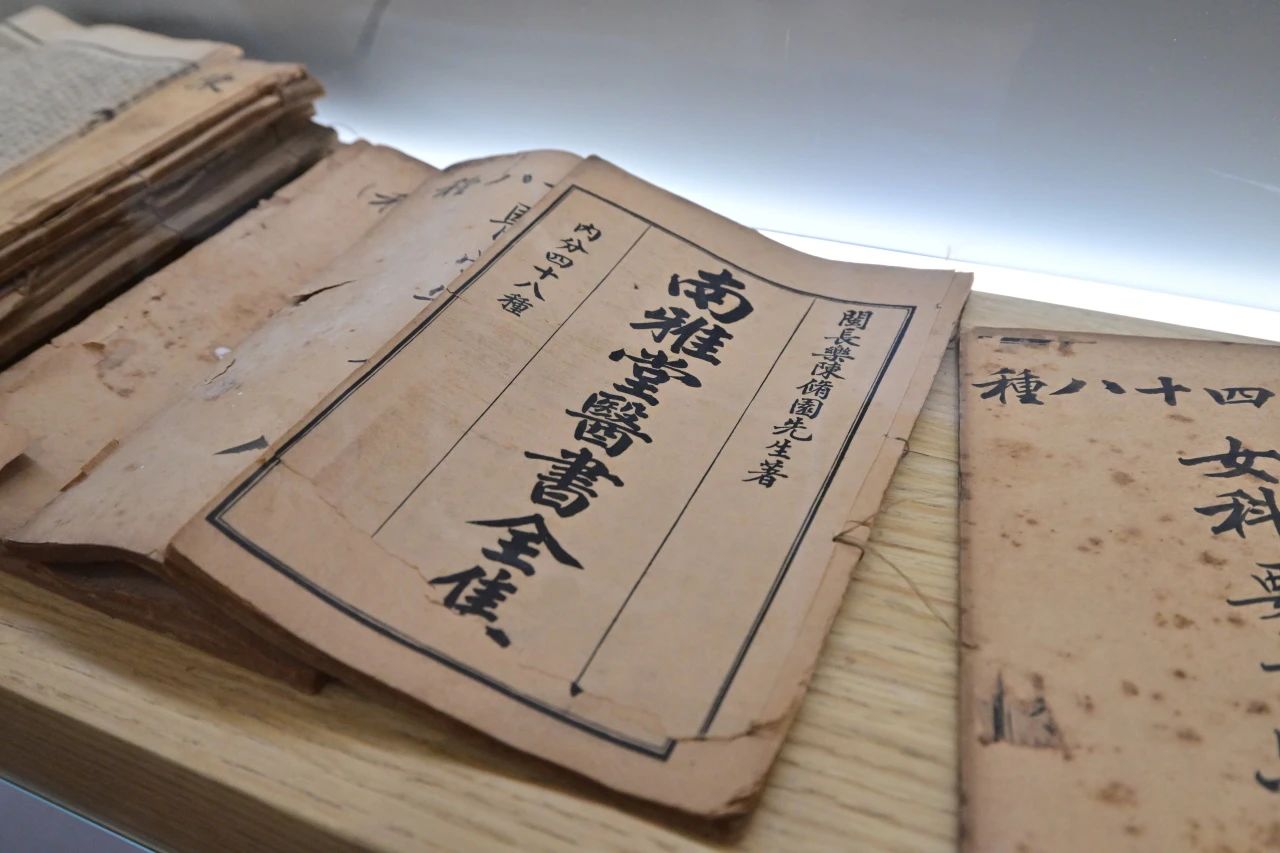 閩長樂陳脩園先生著
南雅堂醫書全集
內分四十八種
四十八種
女科要
八種